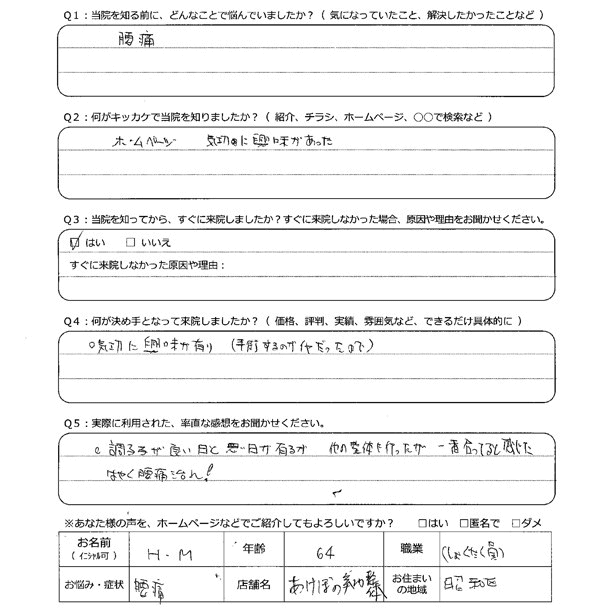 Q1：当院を知る前に、どんなことで悩んでいましたか？（ 気になっていたこと、解決したかったことなど ）
腰痛
Q2：何がキッカケで当院を知りましたか？（ 紹介、チラシ、ホームページ、〇〇で検索など ）
ホームページ 気功に興味があった
Q3：当院を知ってから、すぐに来院しましたか？すぐに来院しなかった場合、原因や理由をお聞かせください。
☑ はい □ いいえ
すぐに来院しなかった原因や理由：
Q4：何が決め手となって来院しましたか？（ 価格、評判、実績、雰囲気など、できるだけ具体的に ）
○気功に興味が有り （手術するのがイヤだったので）
Q5：実際に利用された、率直な感想をお聞かせください。
調子が良い日と悪い日が有るが 他の整体も行ったが 一番合ってると感じた
はやく腰痛治れ！
※あなた様の声を、ホームページなどでご紹介してもよろしいですか？ □はい □匿名で □ダメ
お名前 H・M 年齢 64 職業
（ イニシャル可 ）
お悩み・症状 腰痛 店舗名 あけぼの気功整体 お住まいの地域 昭和区